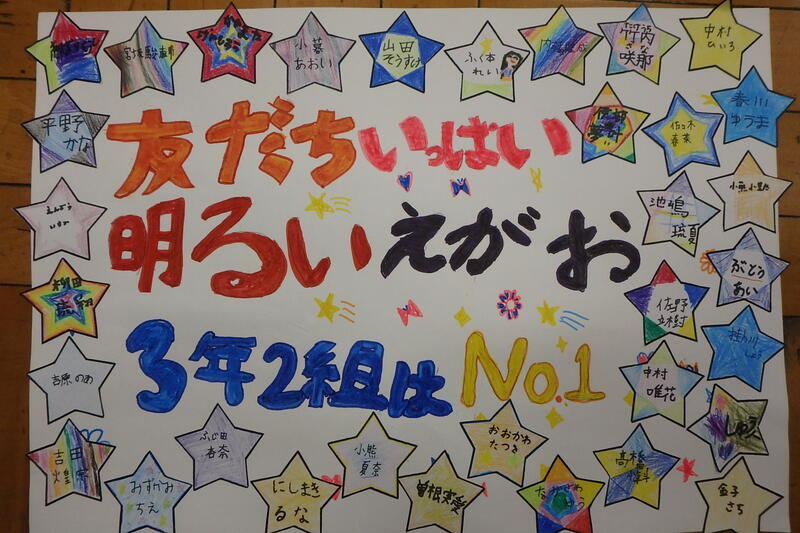 小暮
あおい
山田
そうすけ
ふく本
れい
竹節
さな
咲那
中村
ひいろ
平野
かな
佐々木
春菜
春川
ゆうま
友だちいっぱい
えんどう
池嶋
琉夏
明るいえがお
ぶとう
あい
柳田
佐野
立樹
掛川
しょう
3年2組は No.1
吉原 のわ
中村
唯花
吉田
ふじ田
杏奈
小熊
夏奈
おおかわ
たつき
高橋
おずかみ
ちえ
にしまき
るな
曽根実愛
金子
さち